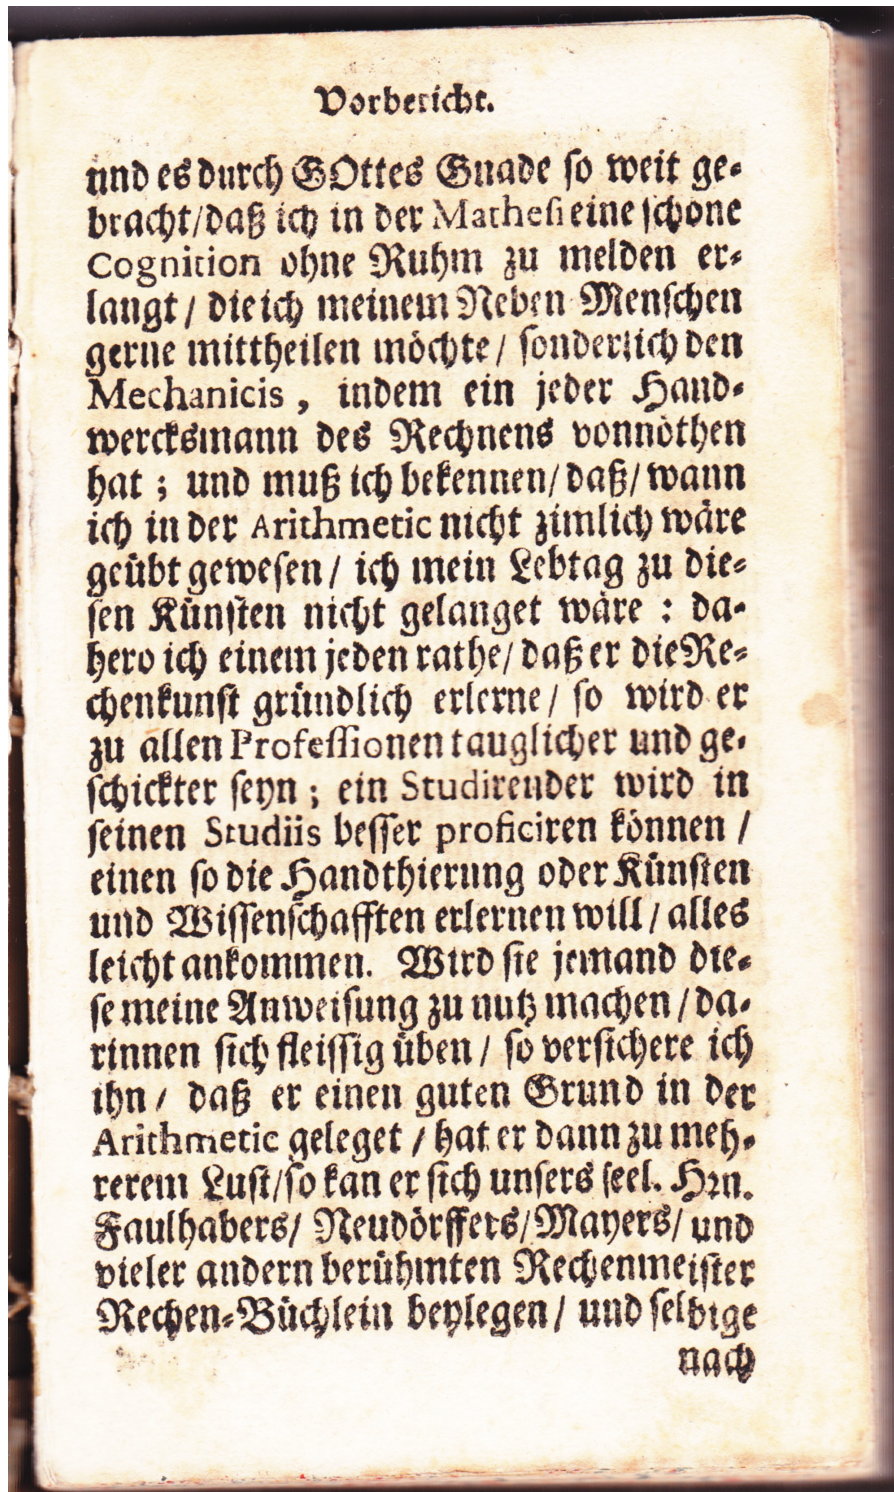 Vorbericht.
und es durch GOttes Gnade so weit ge-
bracht/daß ich in der Mathesi eine schöne
Cognition ohne Ruhm zu melden er-
langt / die ich meinem Neben Menschen
gerne mittheilen möchte / sonderlich den
Mechanicis, indem ein jeder Hand-
wercksmann des Rechnens vonnöthen
hat ; und muß ich bekennen/ daß/ wann
ich in der Arithmetic nicht zimlich wäre
geübt gewesen / ich mein Lebtag zu die-
sen Künsten nicht gelanget wäre : da-
hero ich einem jeden rathe/ daß er die Re-
chenkunst gründlich erlerne / so wird er
zu allen Professionen tauglicher und ge-
schickter seyn ; ein Studirender wird in
seinen Studiis besser proficiren können /
einen so die Handthierung oder Künsten
und Wissenschafften erlernen will / alles
leicht ankommen. Wird sie jemand die-
se meine Anweisung zu nutz machen / da-
rinnen sich fleissig üben / so versichere ich
ihn / daß er einen guten Grund in der
Arithmetic geleget / hat er dann zu meh-
rerem Lust/so kan er sich unsers seel. Hrn.
Faulhabers/ Neudörffers/Mayers/ und
vieler andern berühmten Rechenmeister
Rechen-Büchlein beylegen / und selbige
nach